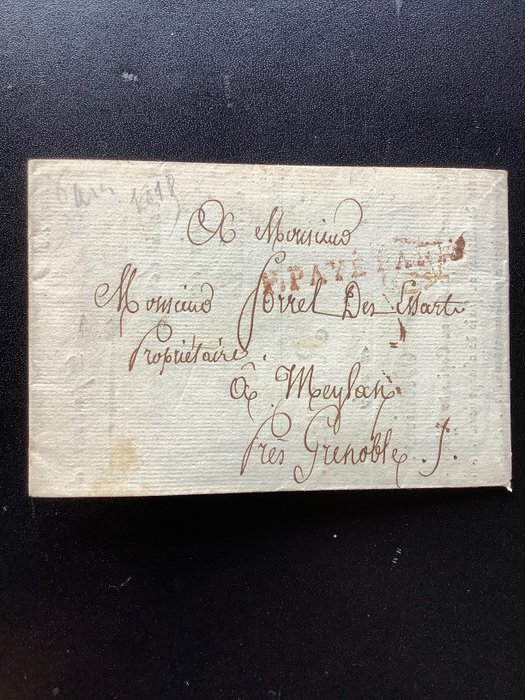 1818
A Monsieur
P.PAYÉ PARIS
Monsieur Sorrel Des Essart
Propriétaire
à Meylan
Près Grenoble. J.